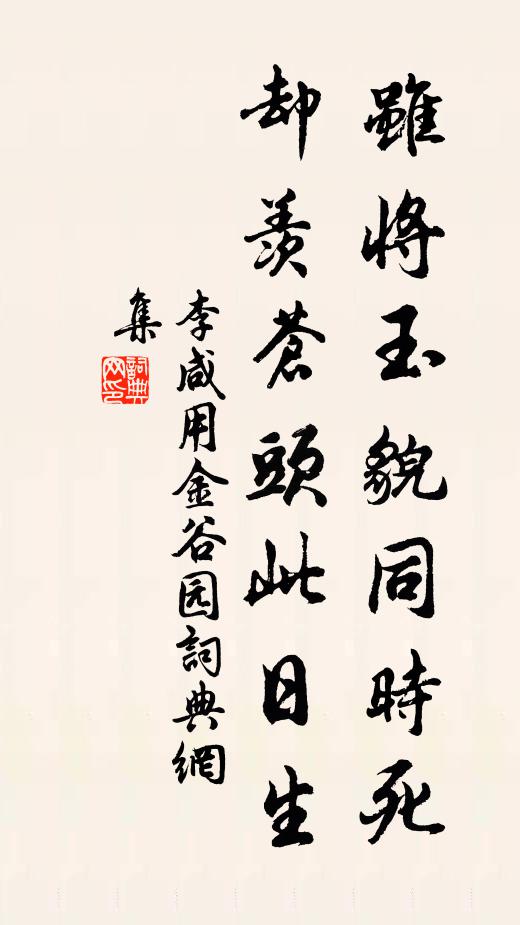 雖將玉貌同時死
却羨蒼頭此日生
李咸用金谷园詞典網
集
詞典
网印